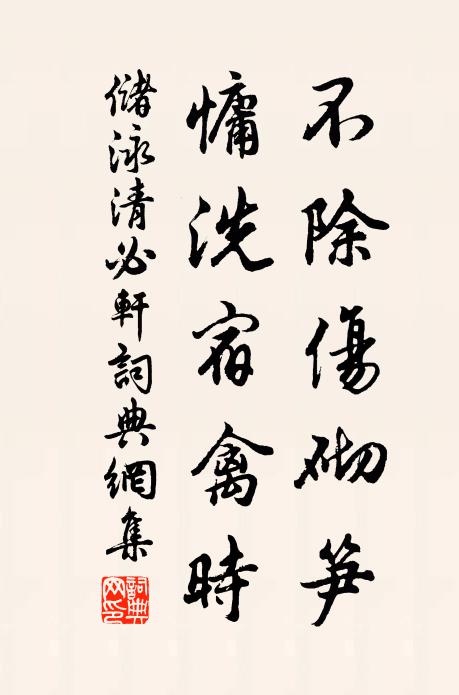 不除傷砌笋
慵洗宿禽時
儲泳清必軒詞典網集
詞典
网印